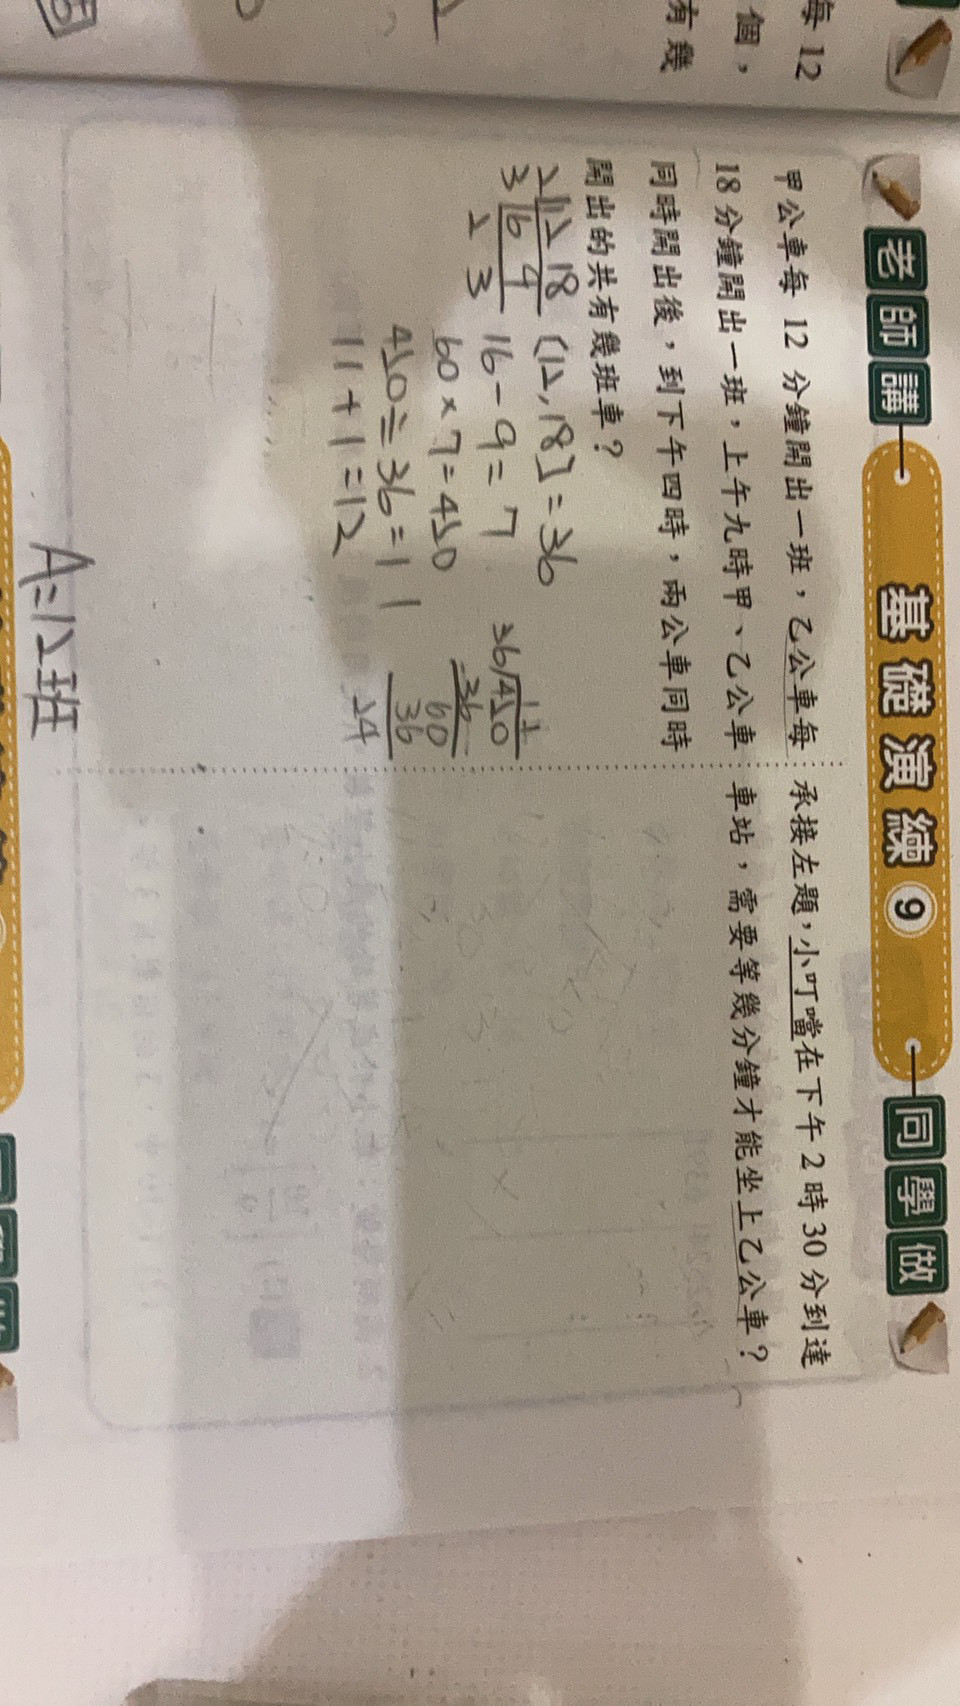 每 12
個，
有幾
老師講
基礎演練 9
同學做
甲公車每 12 分鐘開出一班，乙公車每
18 分鐘開出一班，上午九時甲、乙公車
同時開出後，到下午四時，兩公車同時
開出的共有幾班車？
2 12 18
3 6 9
2 3
(12,18] = 36
16 - 9 = 7
60 × 7 = 420
420 ÷ 36 = 11
11 + 1 = 12
11
36 420
36
60
36
24
A=12班
承接左題，小叮噹在下午 2 時 30 分到達
車站，需要等幾分鐘才能坐上乙公車？